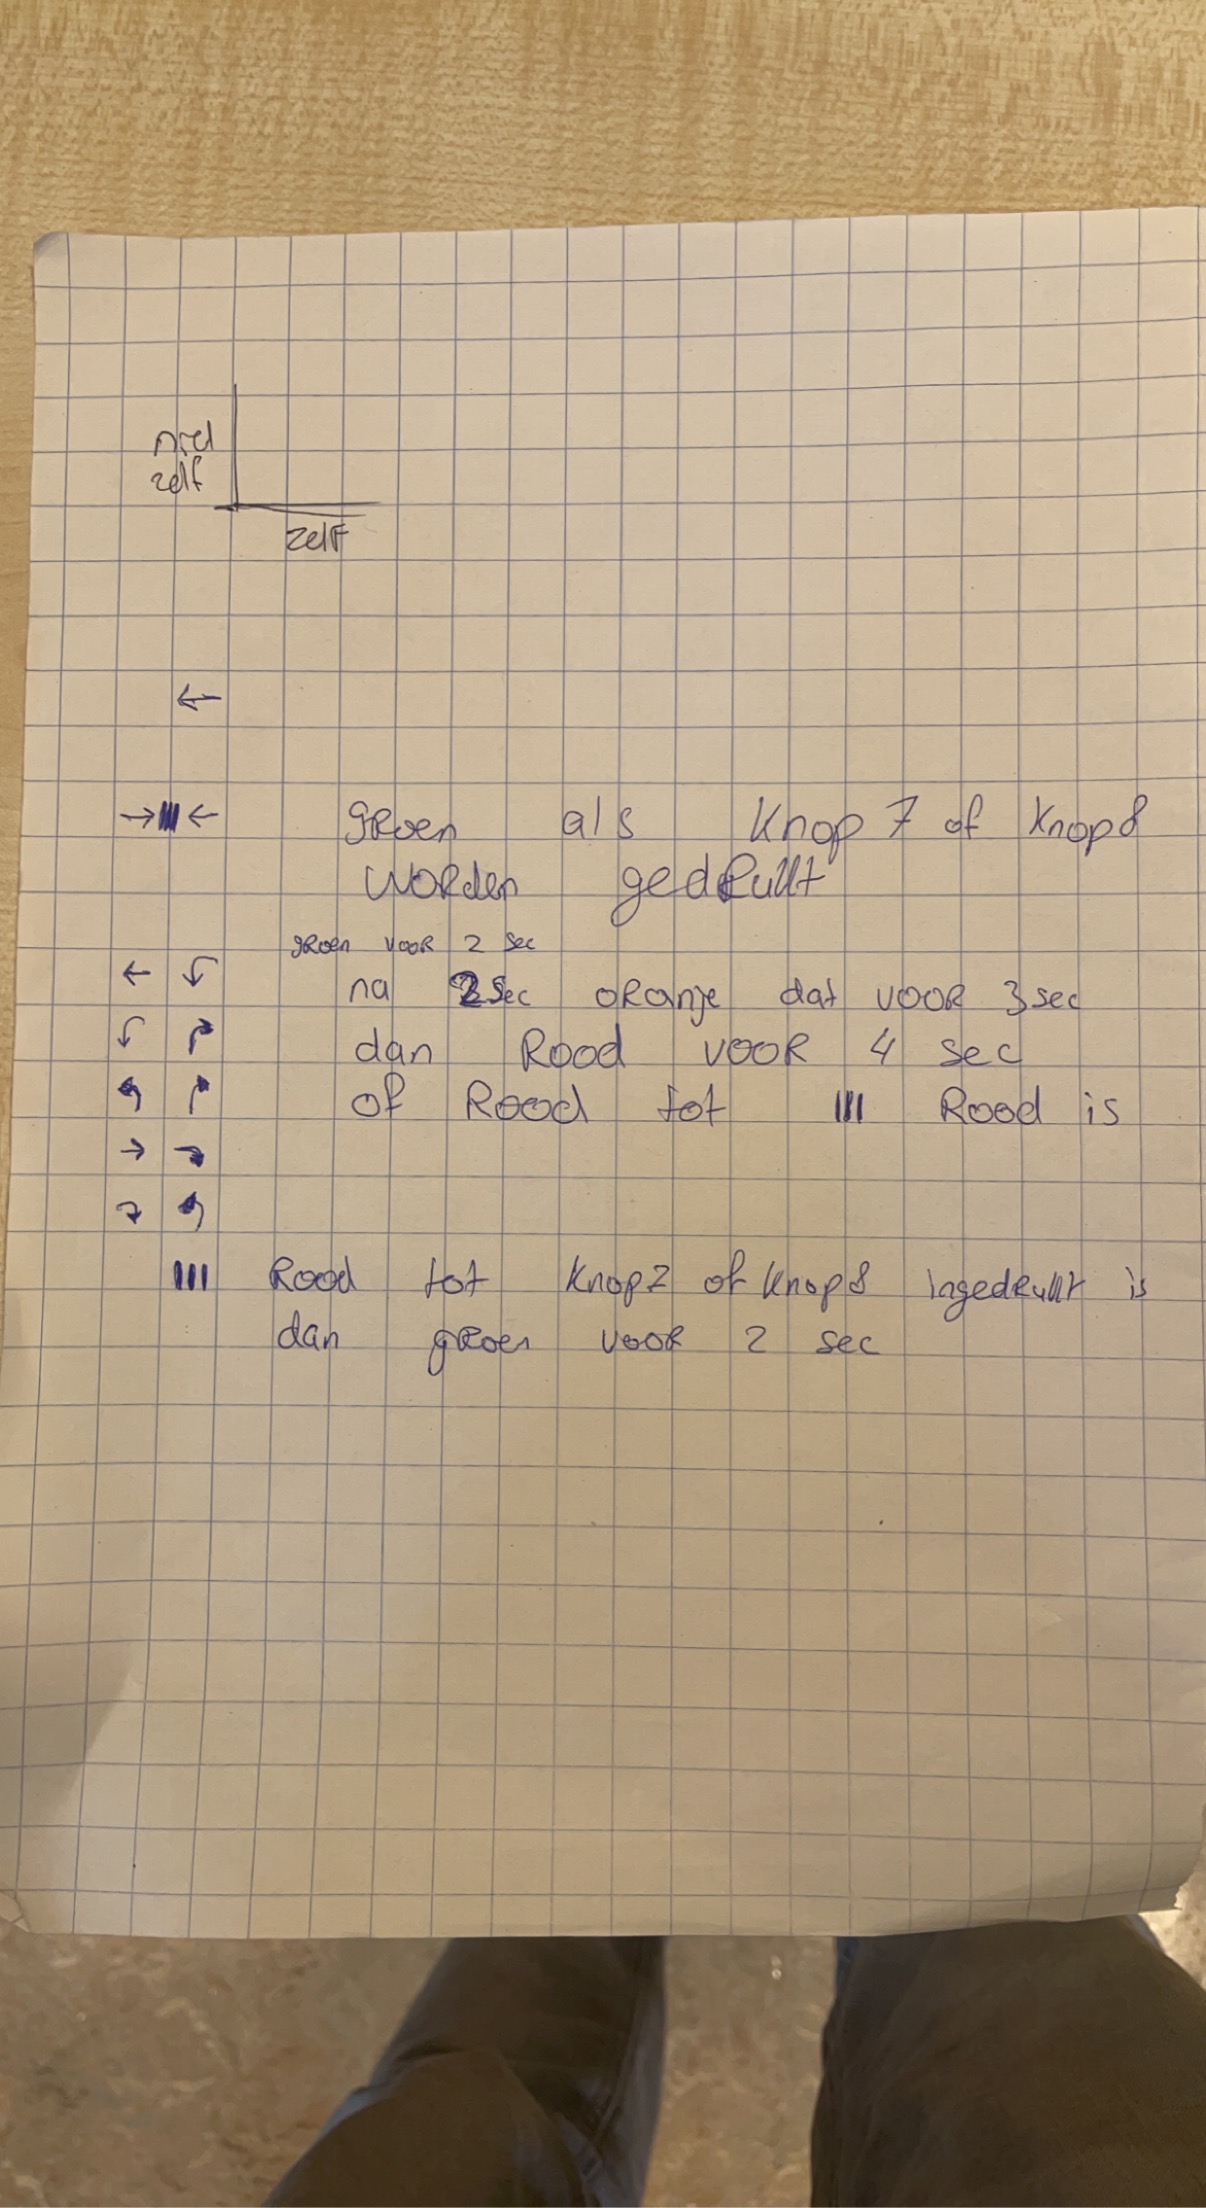 niet
zelf
zelf
←
→ III ← groen als knop 7 of knop 8
worden gedrukt
groen voor 2 sec
na 2 sec oranje dat voor 3 sec
dan Rood voor 4 sec
of Rood tot III Rood is
III Rood tot knop 2 of knop 8 ingedrukt is
dan groen voor 2 sec